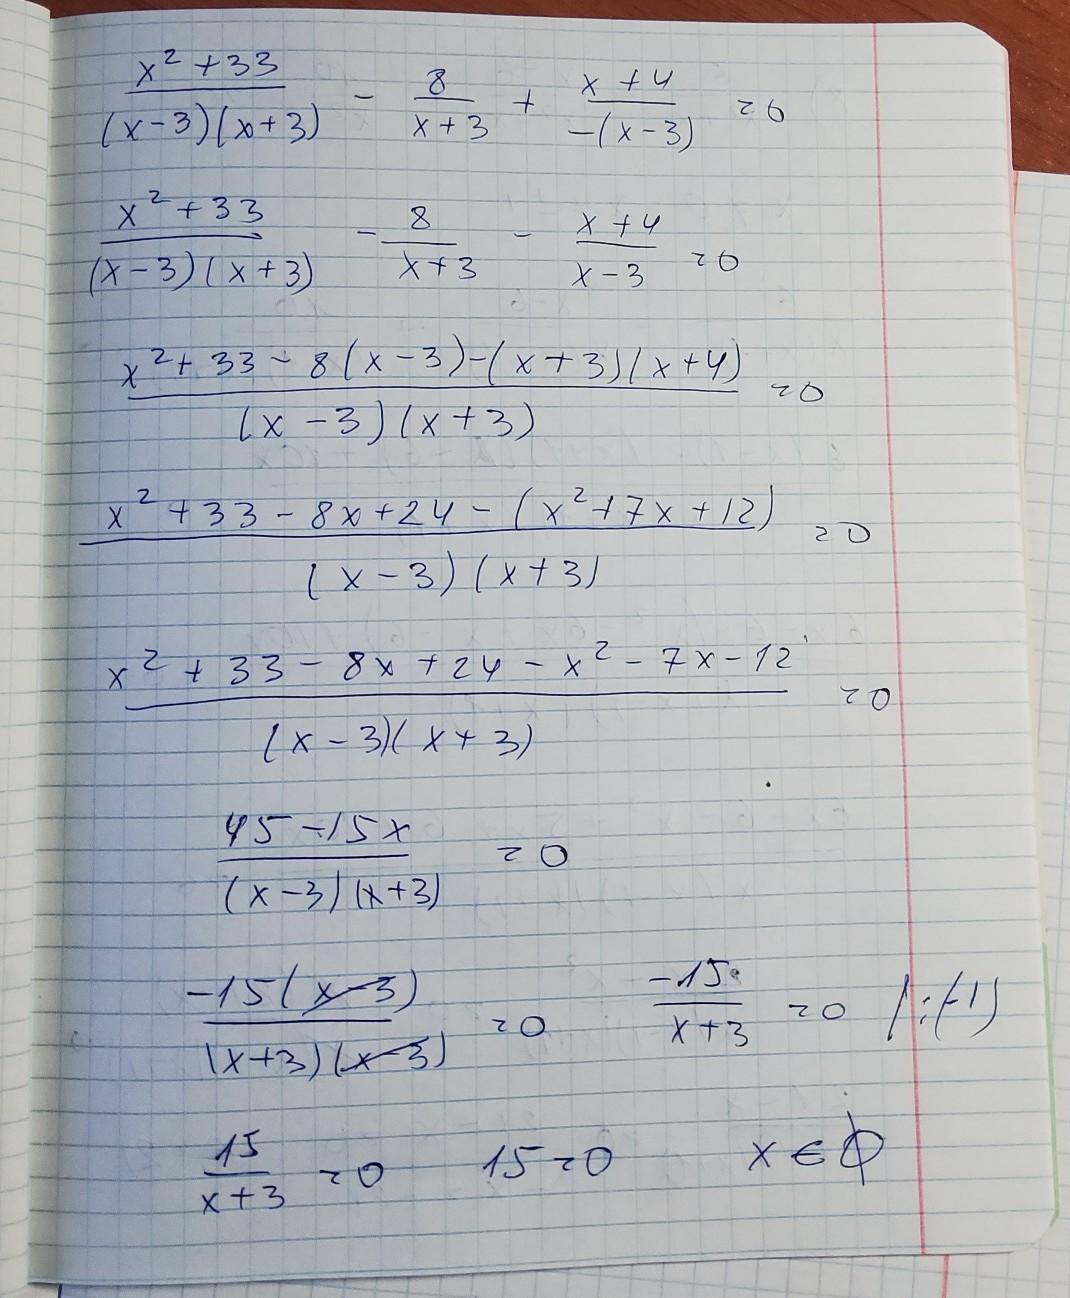 (x² + 33)/((x-3)(x+3)) - 8/(x+3) + (x+4)/(-(x-3)) = 0
(x² + 33)/((x-3)(x+3)) - 8/(x+3) - (x+4)/(x-3) = 0
(x² + 33 - 8(x-3) - (x+3)(x+4))/((x-3)(x+3)) = 0
(x² + 33 - 8x + 24 - (x² + 7x + 12))/((x-3)(x+3)) = 0
(x² + 33 - 8x + 24 - x² - 7x - 12)/((x-3)(x+3)) = 0
(45 - 15x)/((x-3)(x+3)) = 0
(-15(x-3))/((x+3)(x-3)) = 0 -15/(x+3) = 0 /:(-1)
15/(x+3) = 0 15 = 0 x ∈ ϕ